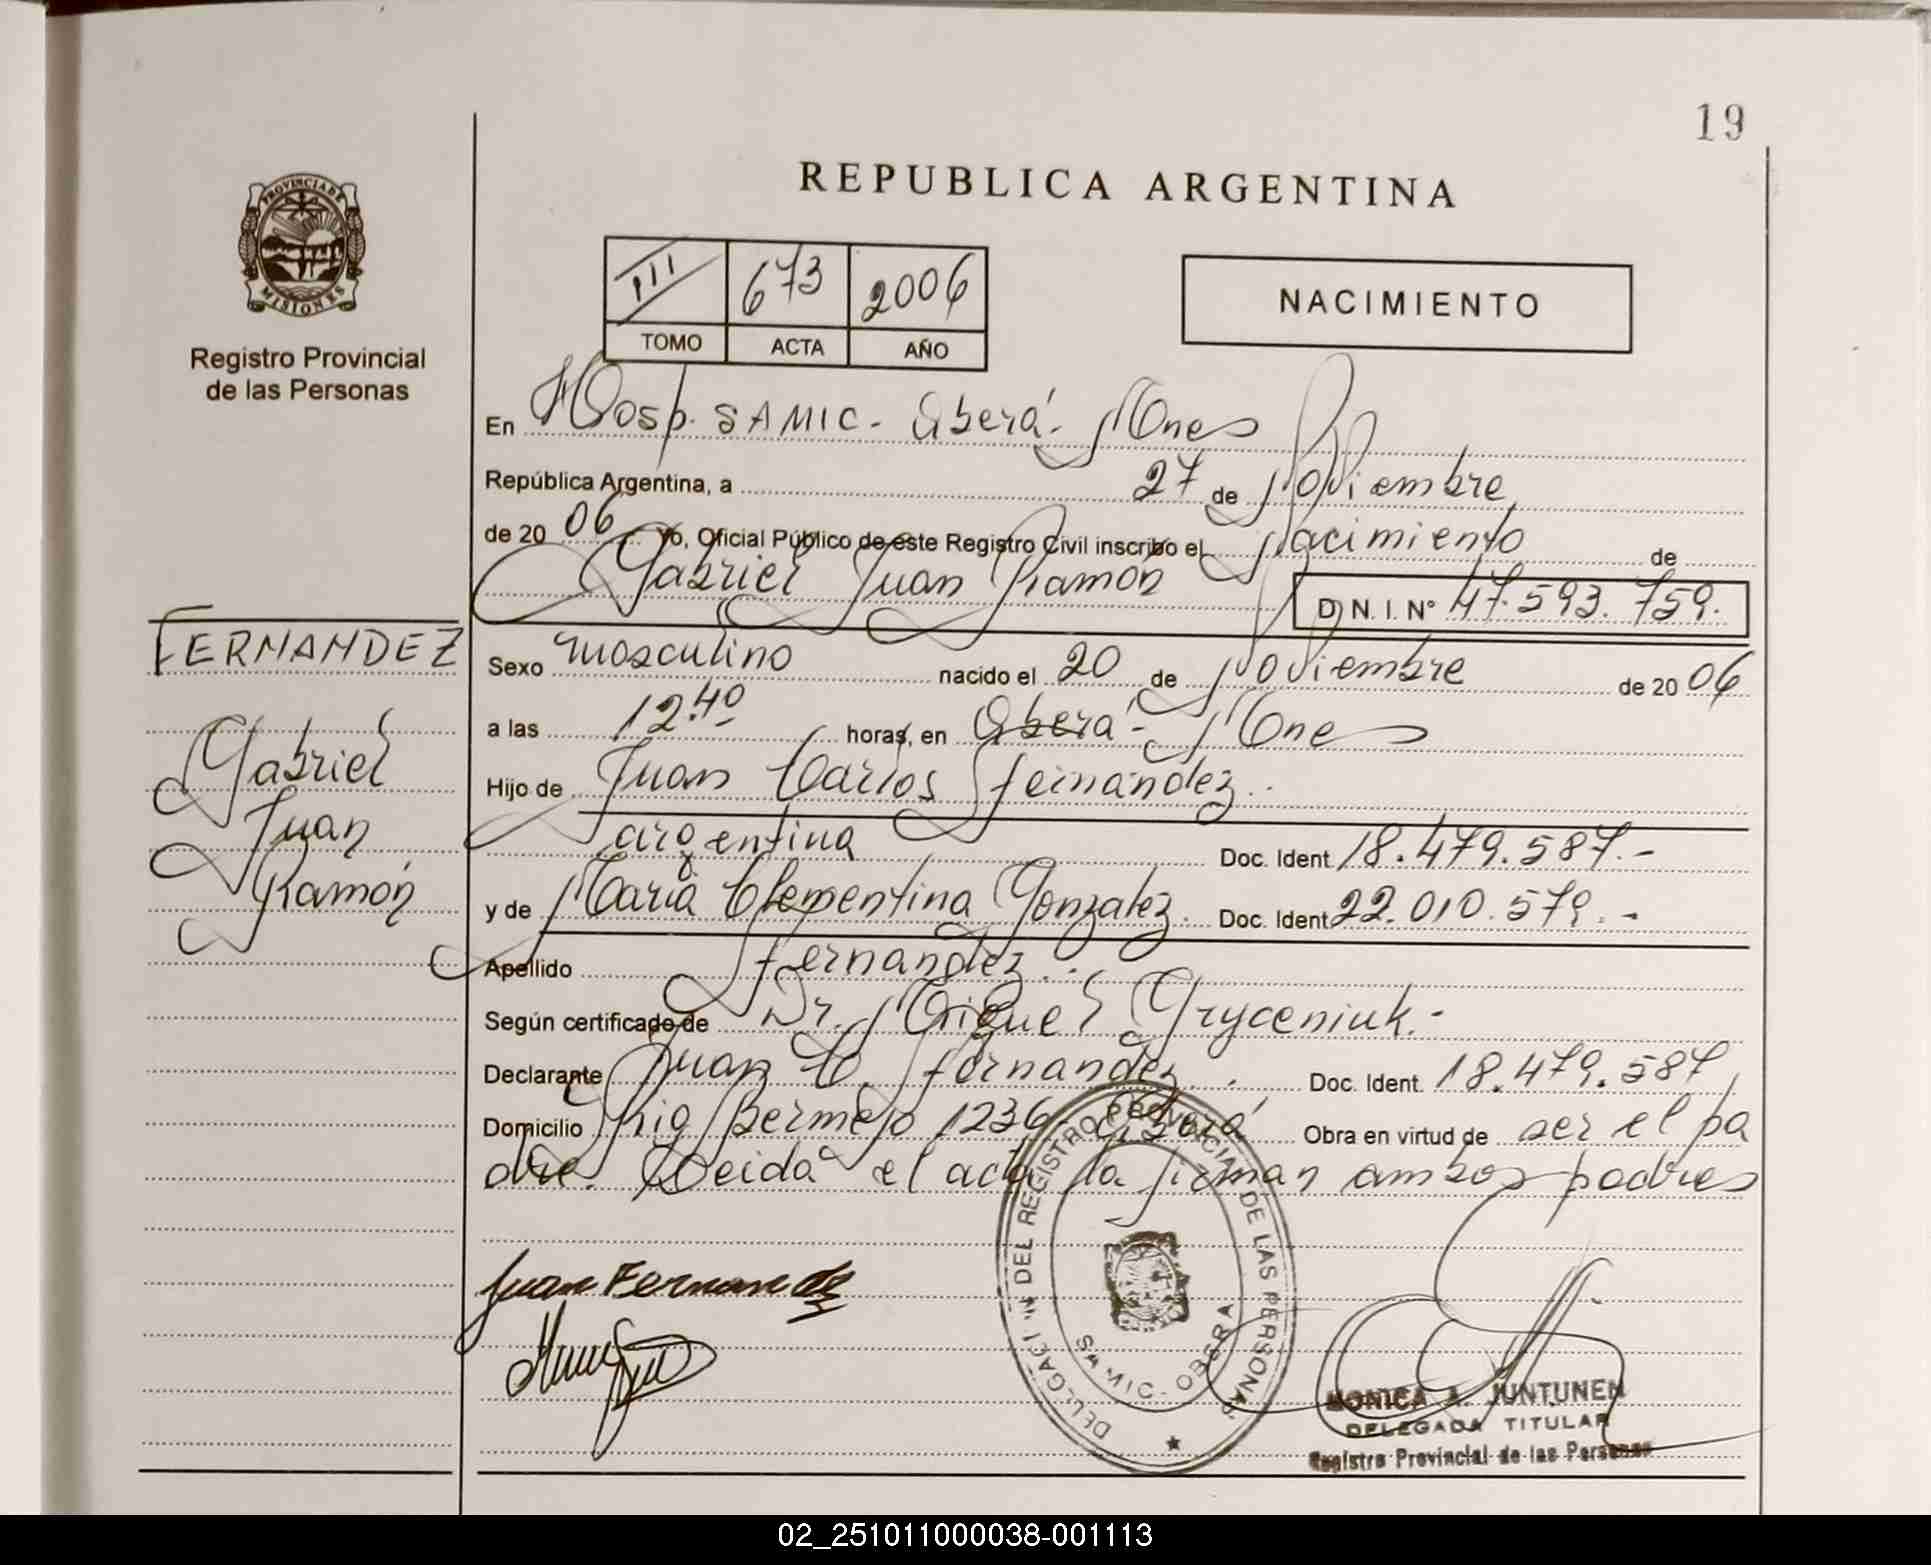 19
REPUBLICA ARGENTINA
PROVINCIA DE
MISIONES
Registro Provincial
de las Personas
III 673 2006
TOMO ACTA AÑO
NACIMIENTO
En Hosp. SAMIC - Oberá - Mnes
República Argentina, a 27 de Noviembre
de 20 06 Yo, Oficial Público de este Registro Civil inscribo el Nacimiento de
Gabriel Juan Ramón D.N.I. N° 47.593.759.
FERNANDEZ
Gabriel
Juan
Ramón
Sexo masculino nacido el 20 de Noviembre de 20 06
a las 12.40 horas, en Oberá - Mnes
Hijo de Juan Carlos Fernández.
argentina Doc. Ident. 18.479.587.-
y de María Clementina Gonzalez. Doc. Ident. 22.010.579.-
Apellido Fernandez.
Según certificado de Dr. Miguel Gryceniuk.-
Declarante Juan C. Fernandez. Doc. Ident. 18.479.587
Domicilio Rio Bermejo 1236 - Oberá Obra en virtud de ser el pa
dre. Leida el acta la firman ambos padres
Juan Fernandez
DELEGACION DEL REGISTRO PROVINCIAL DE LAS PERSONAS
SAMIC - OBERA
MONICA A. JUNTUNEN
DELEGADA TITULAR
Registro Provincial de las Personas
02_251011000038-001113